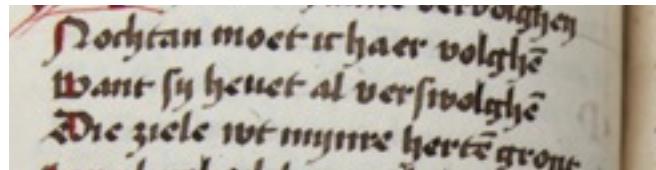 vervolghen
Nochtan moet ic haer volghē
want sy heuet al verswolghē
Die ziele wt mynre hertē gront